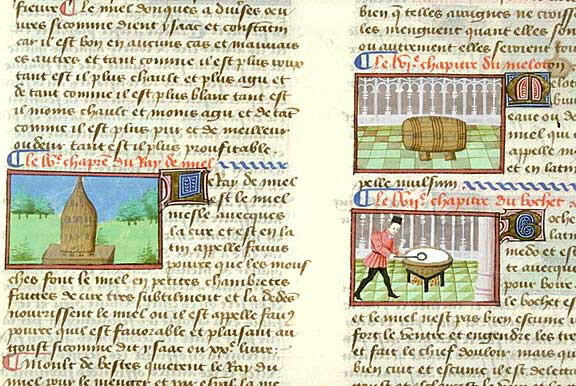 fieure Le miel donques a diuerses oeu
ures sicomme dient ysaac et constantin
car il est bon en aucuns cas et mauuais
es autres et tant comme il est plus roux
tant est il plus chault et plus agu et
de tant comme il est plus blanc tant est
il moins chault et moins agu et de tāt
comme il est plus pur et de meilleur
oudeur tant est il plus proufitable.
chapitre du Ray de miel
Ray de miel
est le miel
mesle auecques
la cire et est en la
tin appelle fauus
pource que les mous
ches font le miel en petites chambretes
faittes de cire tres subtilment et la dedēs
nourrissent le miel ou il est appelle fauꝰ
pource quil est fauorable et plaisant au
goust sicomme dit ysaac ou liure
Moult de bestes quierent le Ray du
miel pour le menger et par
bien q̄ telles auaignes ne croiss
les menguent quant elles son
ou autrement elles seroient
Le chapitre du meloton
elot
buit
eaue ou de
miel qui
appelle
et en latin
pelle mulsum
Le chapitre du bochet
oche
latin
medo et est
te auecqu
pour boire
le bochet es
et le miel nest pas bien escume
fort le ventre et engendre les tre
et fait le chief douloir mais qua
bien cuit et escume il est delecta